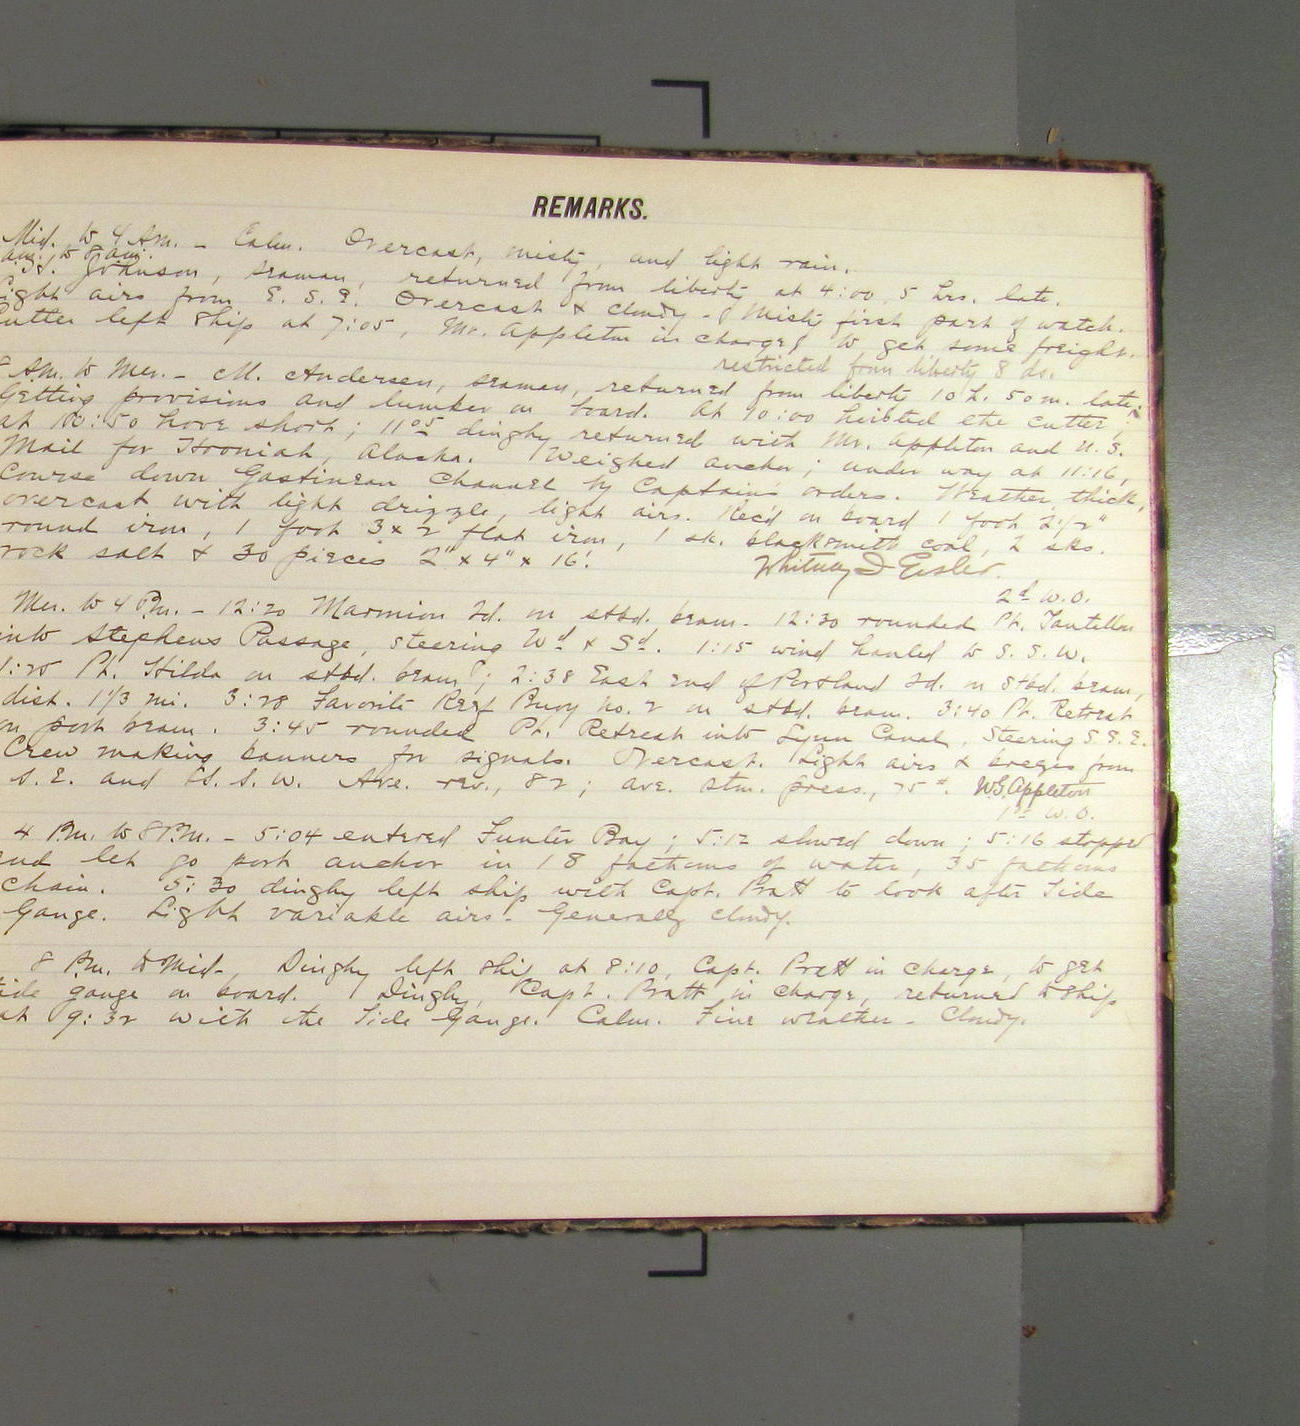 REMARKS.
Mid. to 4 Am. - Calm. Overcast, misty, and light rain.
4 am. to 8 am.
Johnson, seaman, returned from liberty at 4:00, 5 hrs. late.
Light airs from E. S. E. Overcast & cloudy - Misty first part of watch.
Cutter left ship at 7:05, Mr. Appleton in charge, to get some freight.
restricted from liberty 8 ds.
8 Am. to Mer. - M. Andersen, seaman, returned from liberty 10 h. 50 m. late.
Getting provisions and lumber on board. At 10:00 hoisted the cutter;
at 10:50 hove short; 11 05 dinghy returned with Mr. Appleton and U.S.
Mail for Hooniah, Alaska. Weighed anchor; under way at 11:16,
course down Gastineau Channel by Captain's orders. Weather, thick,
overcast with light drizzle, light airs. Rec'd on board 1 foot 2 1/2"
round iron, 1 foot 3 x 2 flat iron, 1 sk. blacksmith coal, 2 sks.
rock salt & 30 pieces 2" x 4" x 16'.
Whitney I Eisler.
2d W.O.
Mer. to 4 Pm. - 12:20 Marmion Id. on stbd. beam. 12:30 rounded Pt. Tantallon
into Stephens Passage, steering Wd & Sd. 1:15 wind hauled to S. S. W.
1:25 Pt. Hilda on stbd. beam; 2:38 East end of Portland Id. on stbd. beam,
dist. 1 1/3 mi. 3:28 Favorite Reef Buoy No. 2 on stbd. beam. 3:40 Pt. Retreat
on port beam. 3:45 rounded Pt. Retreat into Lynn Canal, steering S. S. E.
Crew making banners for signals. Overcast. Light airs & breezes from
S. E. and S. W. Ave. rev., 82; ave. stm. press., 75#. W.G. Appleton
1st W.O.
4 Pm. to 8 Pm. - 5:04 entered Funter Bay; 5:12 slowed down; 5:16 stopped
and let go port anchor in 18 fathoms of water, 35 fathoms
chain. 5:30 dinghy left ship with Capt. Pratt to look after Tide
Gauge. Light variable airs - Generally cloudy.
8 Pm. to Mid-, Dinghy left ship at 8:10, Capt. Pratt in charge, to get
tide gauge on board. Dinghy, Capt. Pratt in charge, returned to ship
at 9:32 with the Tide Gauge. Calm. Fine weather - Cloudy.